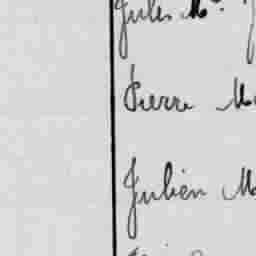 Jules M
Pierre M
Julien M